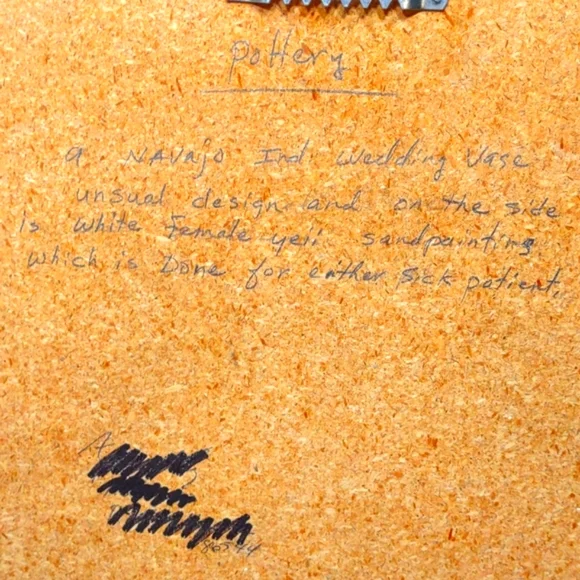 Pottery
a NAVajo Ind. Wedding Vase
unsual design and on the side
is white Female yeii sandpainting
which is Done for either sick patient.